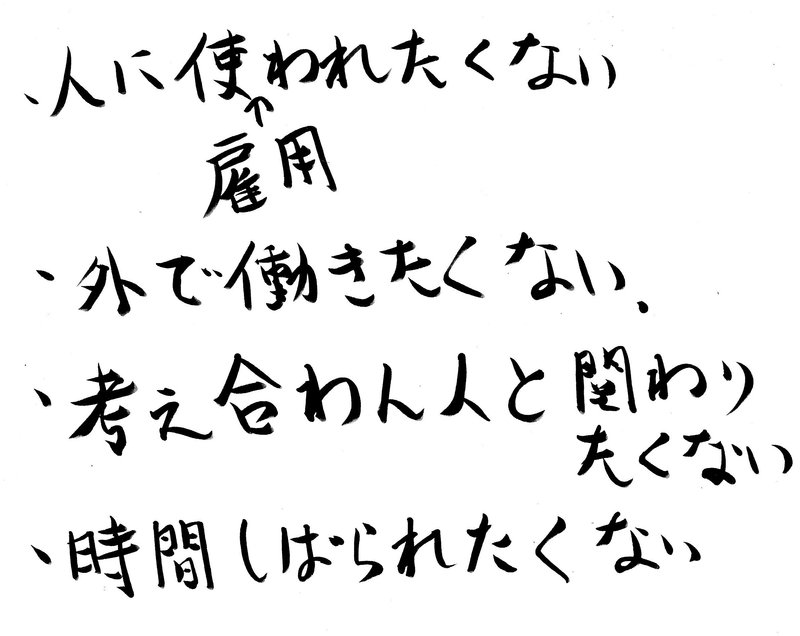 ・人に使われたくない
↑
雇用
・外で働きたくない.
・考え合わん人と関わり
たくない
・時間しばられたくない